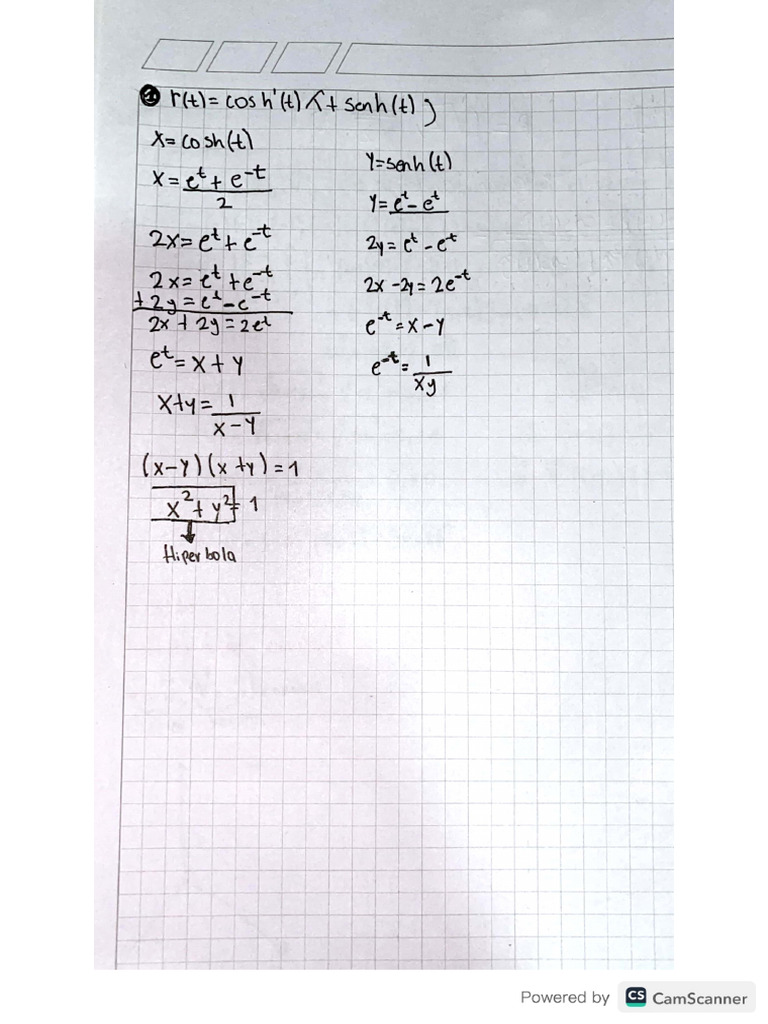 ① r(t) = cosh'(t) ⟨ + senh(t) )
x = cosh(t)
x = e^t + e^-t / 2
2x = e^t + e^-t
2x = e^t + e^-t
+ 2y = e^t - e^-t
2x + 2y = 2e^t
e^t = x + y
x+y = 1 / x-y
(x-y)(x+y) = 1
x² + y² = 1
Hiperbola
y = senh(t)
y = e^t - e^t
2y = e^t - e^t
2x - 2y = 2e^-t
e^-t = x - y
e^-t = 1 / xy
Powered by CS CamScanner